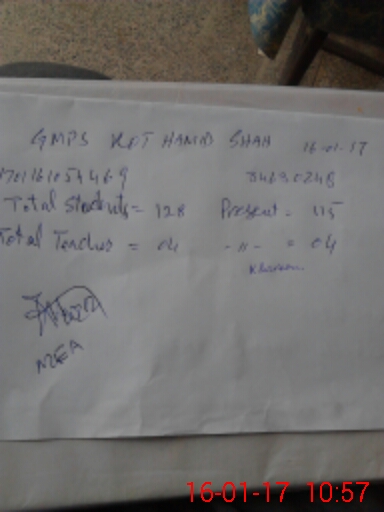 GMPS KOT HAMID SHAH 16-01-17
Total Students = 128 Present = 115
Total Teacher = 04 -"- = 04
MEA
16-01-17 10:57